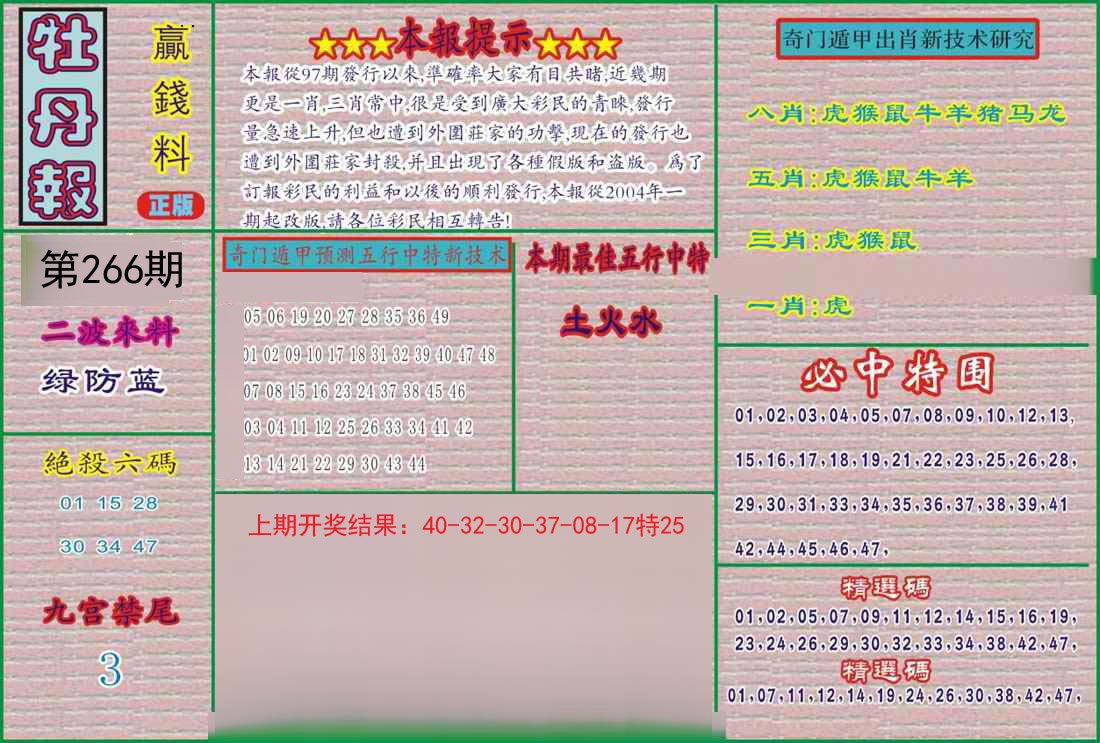 牡丹報
贏錢料
正版
★★★本報提示★★★
本報從97期發行以來,準確率大家有目共睹,近幾期
更是一肖,三肖常中,很是受到廣大彩民的青睞,發行
量急速上升,但也遭到外圍莊家的功擊,現在的發行也
遭到外圍莊家封殺,并且出現了各種假版和盗版。爲了
訂報彩民的利益和以後的順利發行,本報從2004年一
期起改版,請各位彩民相互轉告!
奇门遁甲出肖新技术研究
八肖:虎猴鼠牛羊猪马龙
五肖:虎猴鼠牛羊
三肖:虎猴鼠
一肖:虎
第266期
二波來料
绿防蓝
奇门遁甲预测五行中特新技术
05 06 19 20 27 28 35 36 49
01 02 09 10 17 18 31 32 39 40 47 48
07 08 15 16 23 24 37 38 45 46
03 04 11 12 25 26 33 34 41 42
13 14 21 22 29 30 43 44
本期最佳五行中特
土火水
必中特围
01,02,03,04,05,07,08,09,10,12,13,
15,16,17,18,19,21,22,23,25,26,28,
29,30,31,33,34,35,36,37,38,39,41
42,44,45,46,47,
絕殺六碼
01 15 28
30 34 47
九宫禁尾
3
上期开奖结果：40-32-30-37-08-17特25
精選碼
01,02,05,07,09,11,12,14,15,16,19,
23,24,26,29,30,32,33,34,38,42,47,
精選碼
01,07,11,12,14,19,24,26,30,38,42,47,